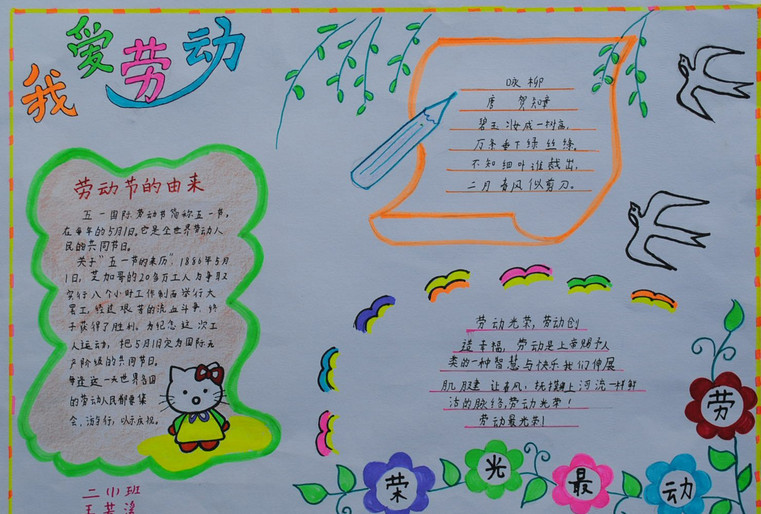 我爱劳动
劳动节的由来
五一国际劳动节简称五一节,
在每年的5月1日。它是全世界劳动人
民的共同节日。
关于"五一节的来历":1886年5月
1日,芝加哥的20多万工人为争取
实行八个小时工作制而举行大
罢工,经过艰苦的流血斗争,终
于获得了胜利。为纪念这次工
人运动,把5月1日定为国际无
产阶级的共同节日。
每逢这一天世界各国
的劳动人民都要集
会、游行,以示庆祝。
二(1)班
咏柳
唐 贺知章
碧玉妆成一树高,
万条垂下绿丝绦。
不知细叶谁裁出,
二月春风似剪刀。
劳动光荣,劳动创
造幸福,劳动是上帝赐予人
类的一种智慧与快乐我们伸展
肌腱 让春风:抚摸上河流一样鲜
活的脉络,劳动光荣!
劳动最光荣!
荣光最动劳